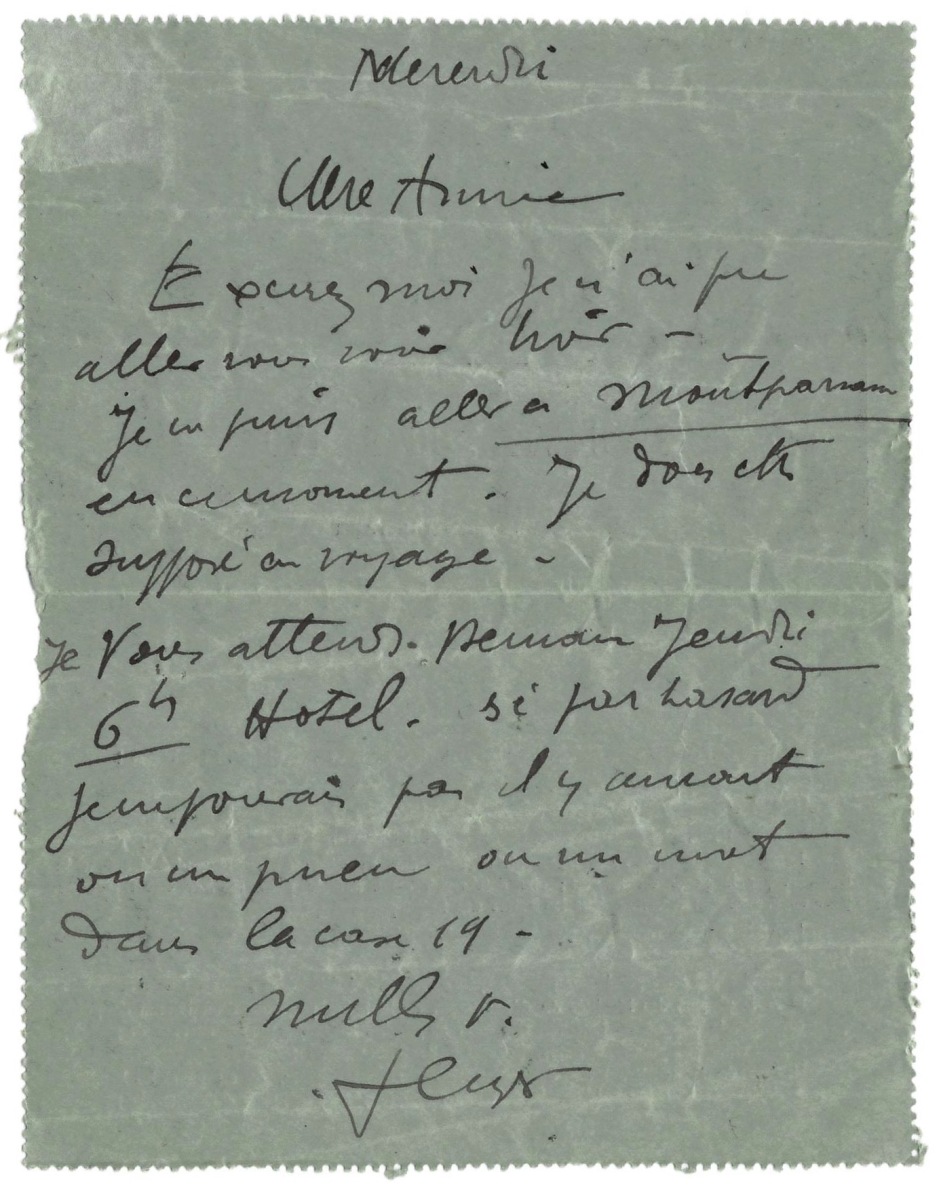 Mercredi
Chere Annie
Excusez moi Je n'ai pu
aller vous voir hier –
Je ne puis aller a Montparnasse
en ce moment. Je dois etre
supposé en voyage –
Je Vous attends. Demain Jeudi
6h Hotel. si par hasard
je ne pouvais pas il y aurait
ou un pneu ou un mot
dans la case 19 –
mille